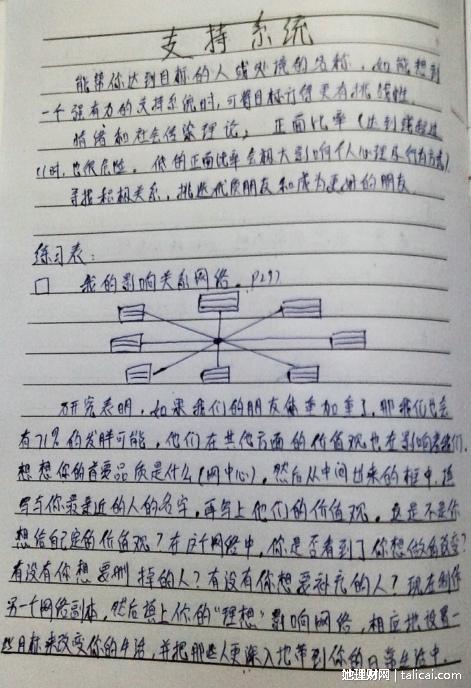 支持系统
能帮你达到目标的人或处境的名称，如能想到
一个强有力的支持系统时，可将目标订得更有挑战性。
情绪和社会传染理论，正面比率（达到或超过
11时，也很危险。你的正面比率会极大影响个人心理及行为方式）
寻找积极关系，挑选优质朋友和成为更好的朋友
练习表：
□ 我的影响关系网络。P297
研究表明，如果我们的朋友体重加重了，那我们也会
有71%的发胖可能，他们在其他方面的价值观也在影响着我们。
想想你的首要品质是什么（网中心），然后从中间出来的框中，填
写与你最亲近的人的名字，再写上他们的价值观。这是不是你
想给自己定的价值观？在这个网络中，你是否看到了你想做的改变？
有没有你想要删掉的人？有没有你想要补充的人？现在制作
另一个网络副本，然后填上你的“理想”影响网络，相应地设置一
些目标来改变你的生活，并把那些人更深入地带到你的日常生活中。
她理财网 | talicai.com